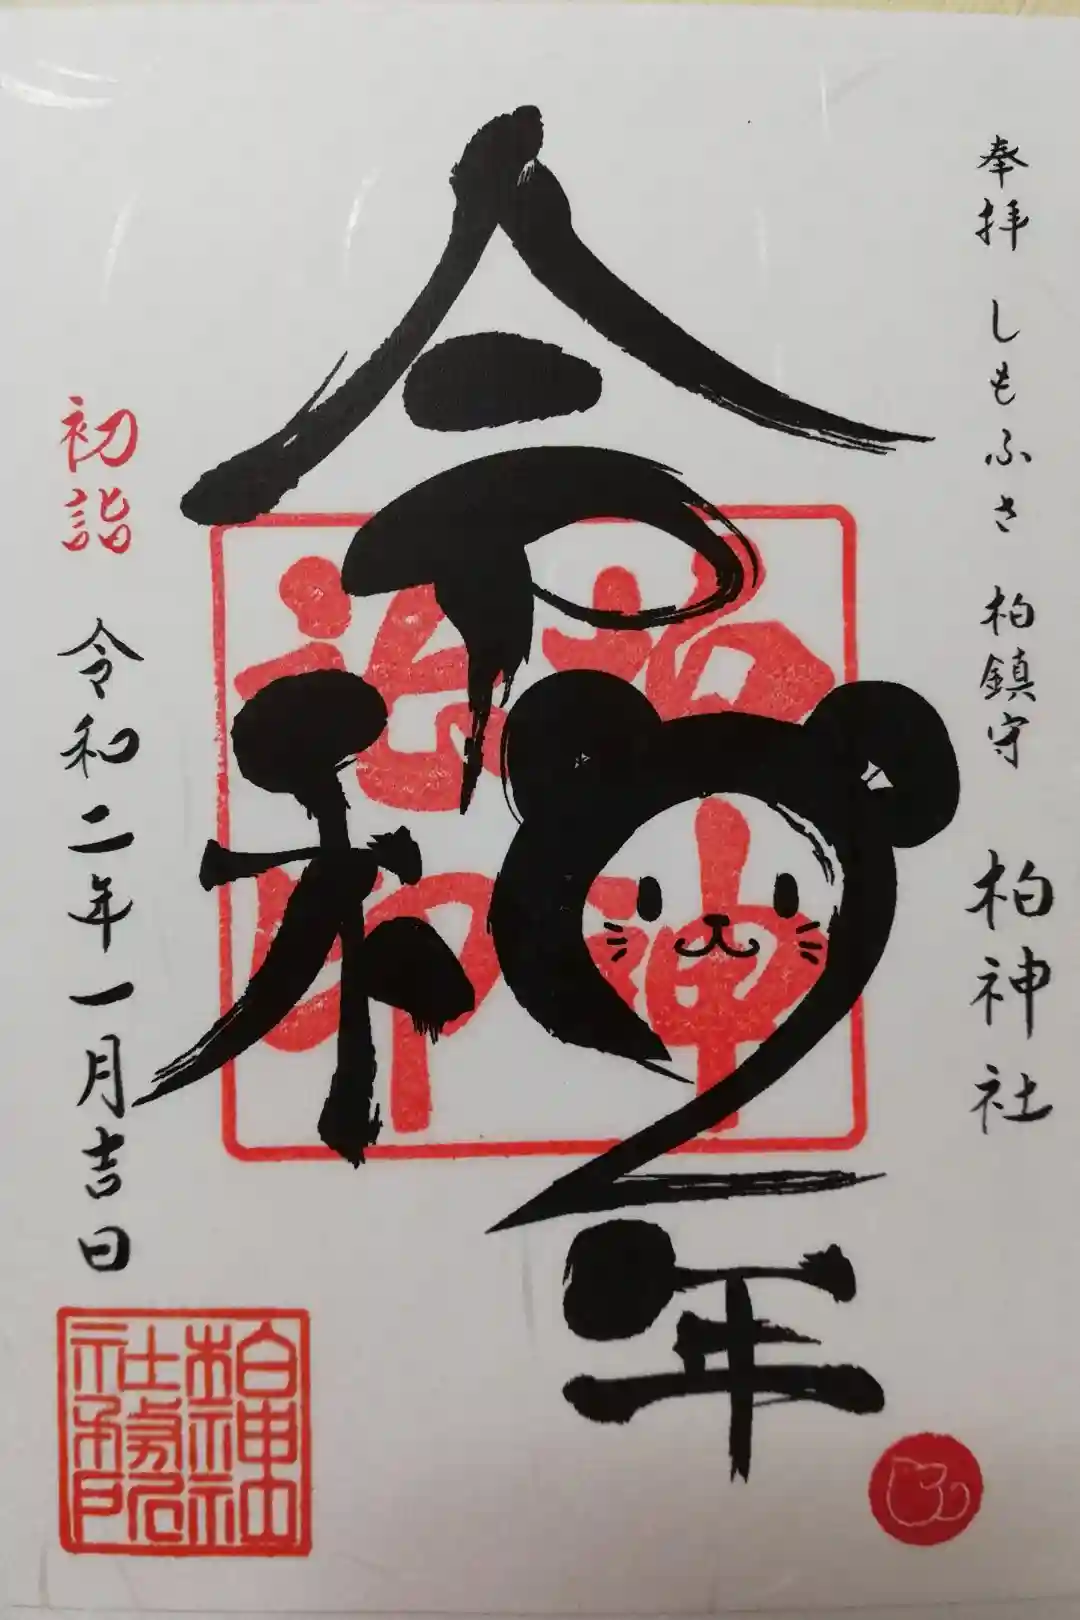 奉拝 しもふさ 柏鎮守 柏神社
令和2年
初詣 令和二年一月吉日
柏神社
社務所